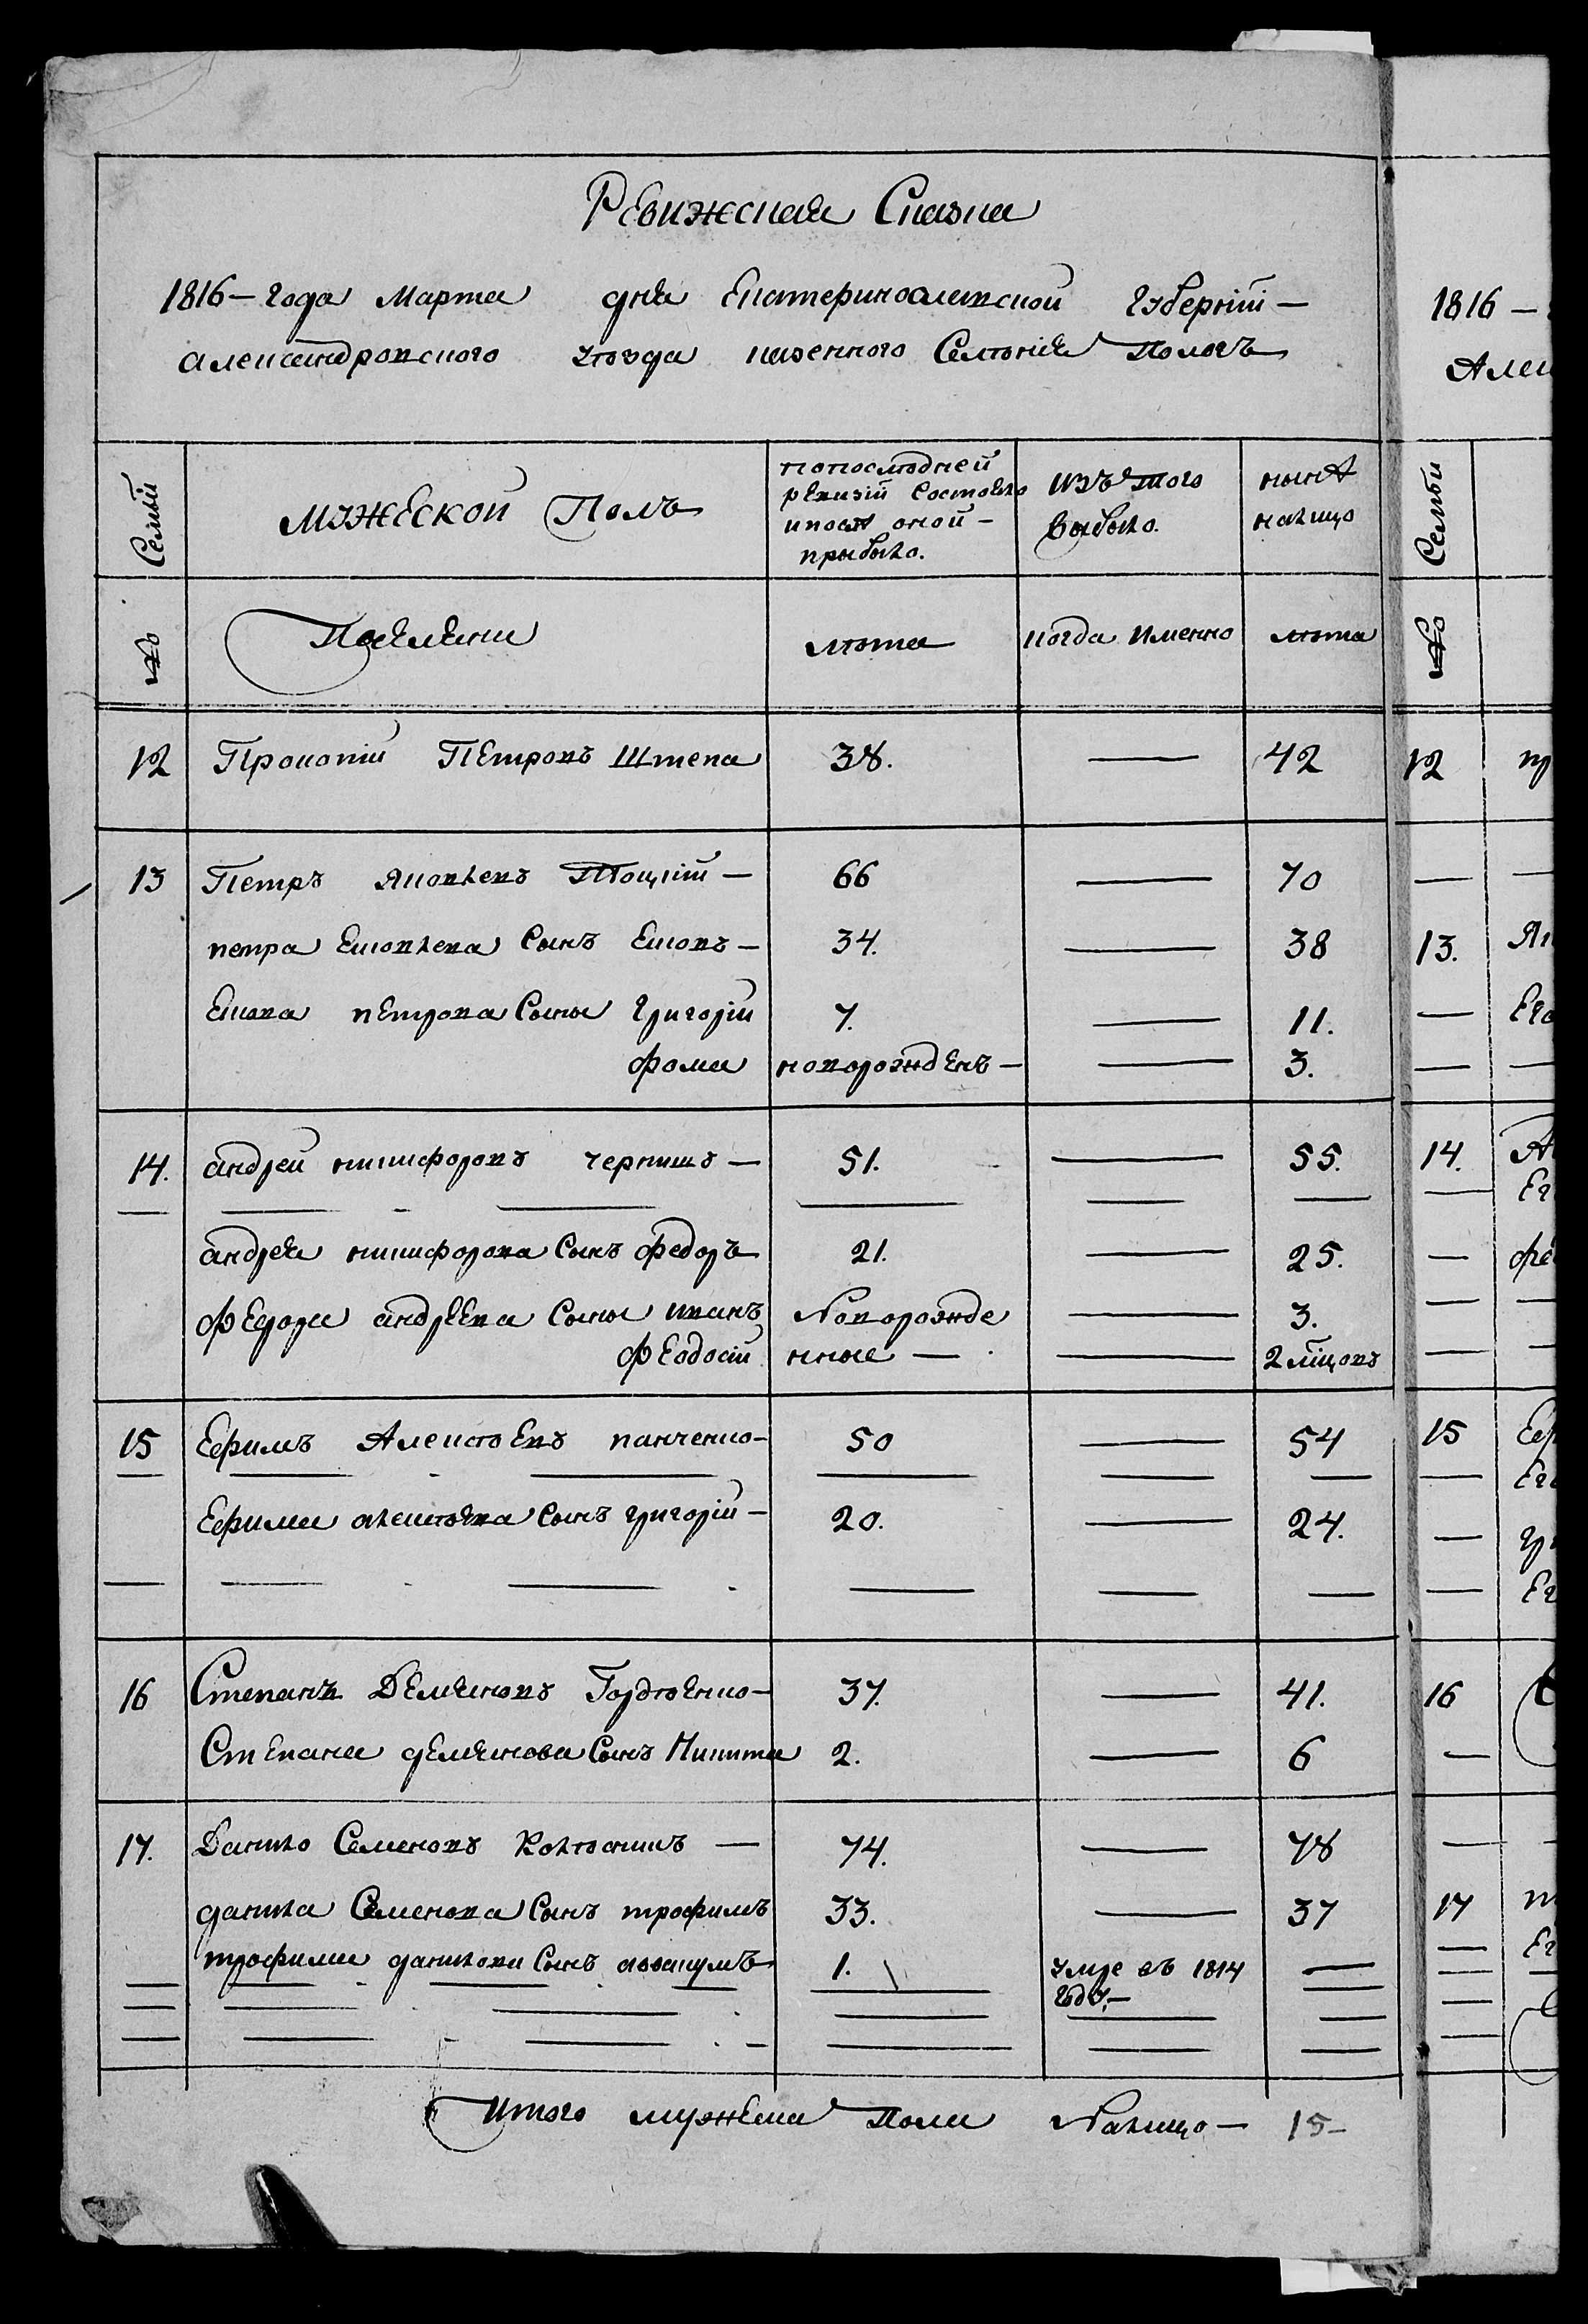 Ревижская Сказка
1816 – года Марта дня Екатеринославской Губерніи –
александровского уѣзда казенного Селѣния Пологъ
Семьи
Мужеской Полъ
попослѣдней
ревизіи Состояло
ипосля оной –
прыбыло.
изъ того
выбыло.
нынѣ
налицо
Семьи
№
Поселяни
лѣта
когда именно
лѣта
№
12 Прокопій Петровъ Штепа 38. — 42
13 Петръ Яковлевъ Тоцкій – 66 — 70
петра Яковлева Сынъ Яковъ – 34. — 38
Якова петрова Сыны григорій 7. — 11.
фома новорожденъ – — 3.
14. андрей никифоровъ чернишъ — 51. — 55.
андрея никифорова Сынъ федоръ 21. — 25.
федора андреева Сыны иванъ Новорожде — 3.
феодосій нные — — 2 мѣцовъ
15 Ефимъ Алексѣевъ панченко – 50 — 54
Ефима алексѣева Сынъ григорій – 20. — 24.
16 Степанъ Демяновъ Гордѣенко – 37. — 41.
Степана демянова Сынъ Никита 2. — 6
17. Данило Семеновъ Колѣсникъ — 74. — 78
данила Семенова Сынъ трофимъ 33. — 37
трофима данилова Сынъ аввакумъ 1. умре въ 1814 —
году. –
Итого мужеска пола Налицо — 15 –
1816 –
Алек
12 пр
13. Як
Его
14. А
Ег
фе
15 Еф
Ег
гр
Ег
16
17 т
Ег